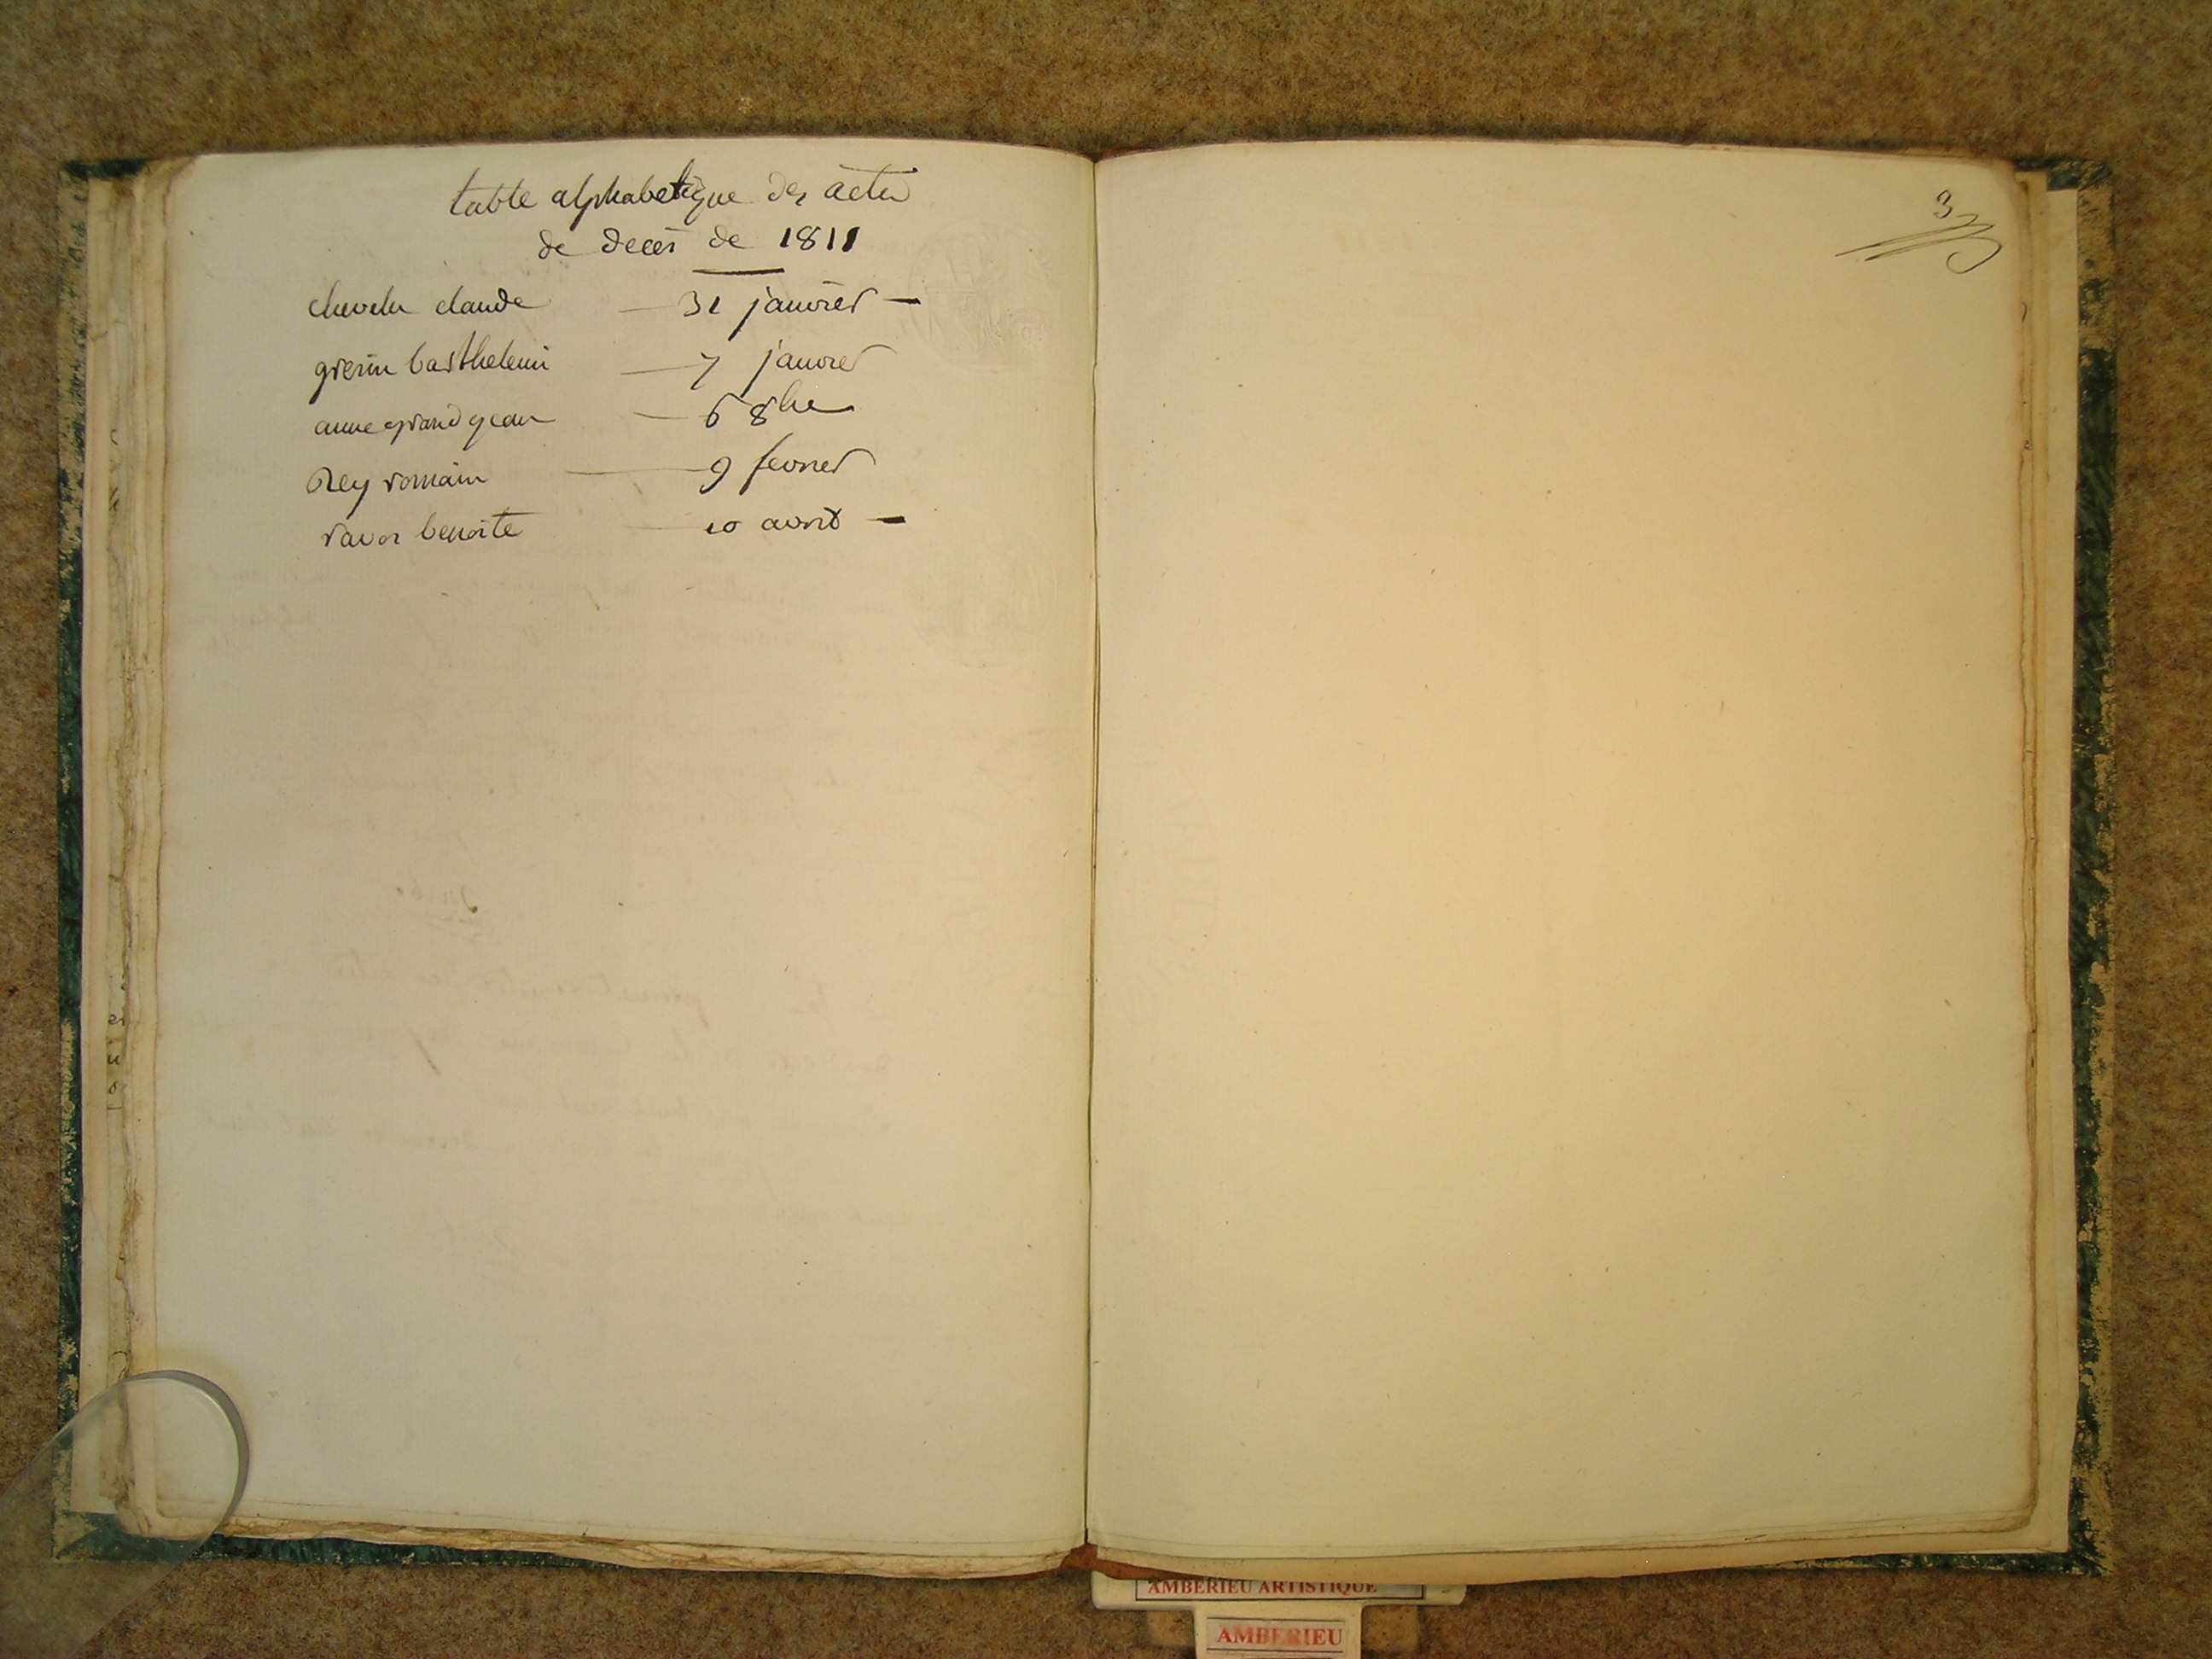 table alphabetique des actes
de decès de 1811
chevelu claude — 31 janvier —
grenin barthelemi — 7 janvier
anne grandjean — 6 8bre
Rey romain — 9 fevrier
benoite — 10 avril —
3
AMBERIEU ARTISTIQUE
AMBERIEU